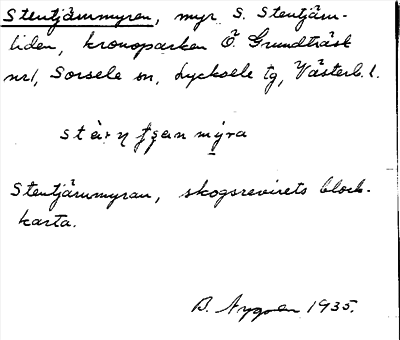 Stentjärnmyren, myr S. Stentjärn-
liden, kronoparken Ö. Grundträsk
nr1, Sorsele sn, Lycksele tg, Västerb. l.
Stentjärnmyran, skogsrevirets block-
karta.
B. Nygren 1935.